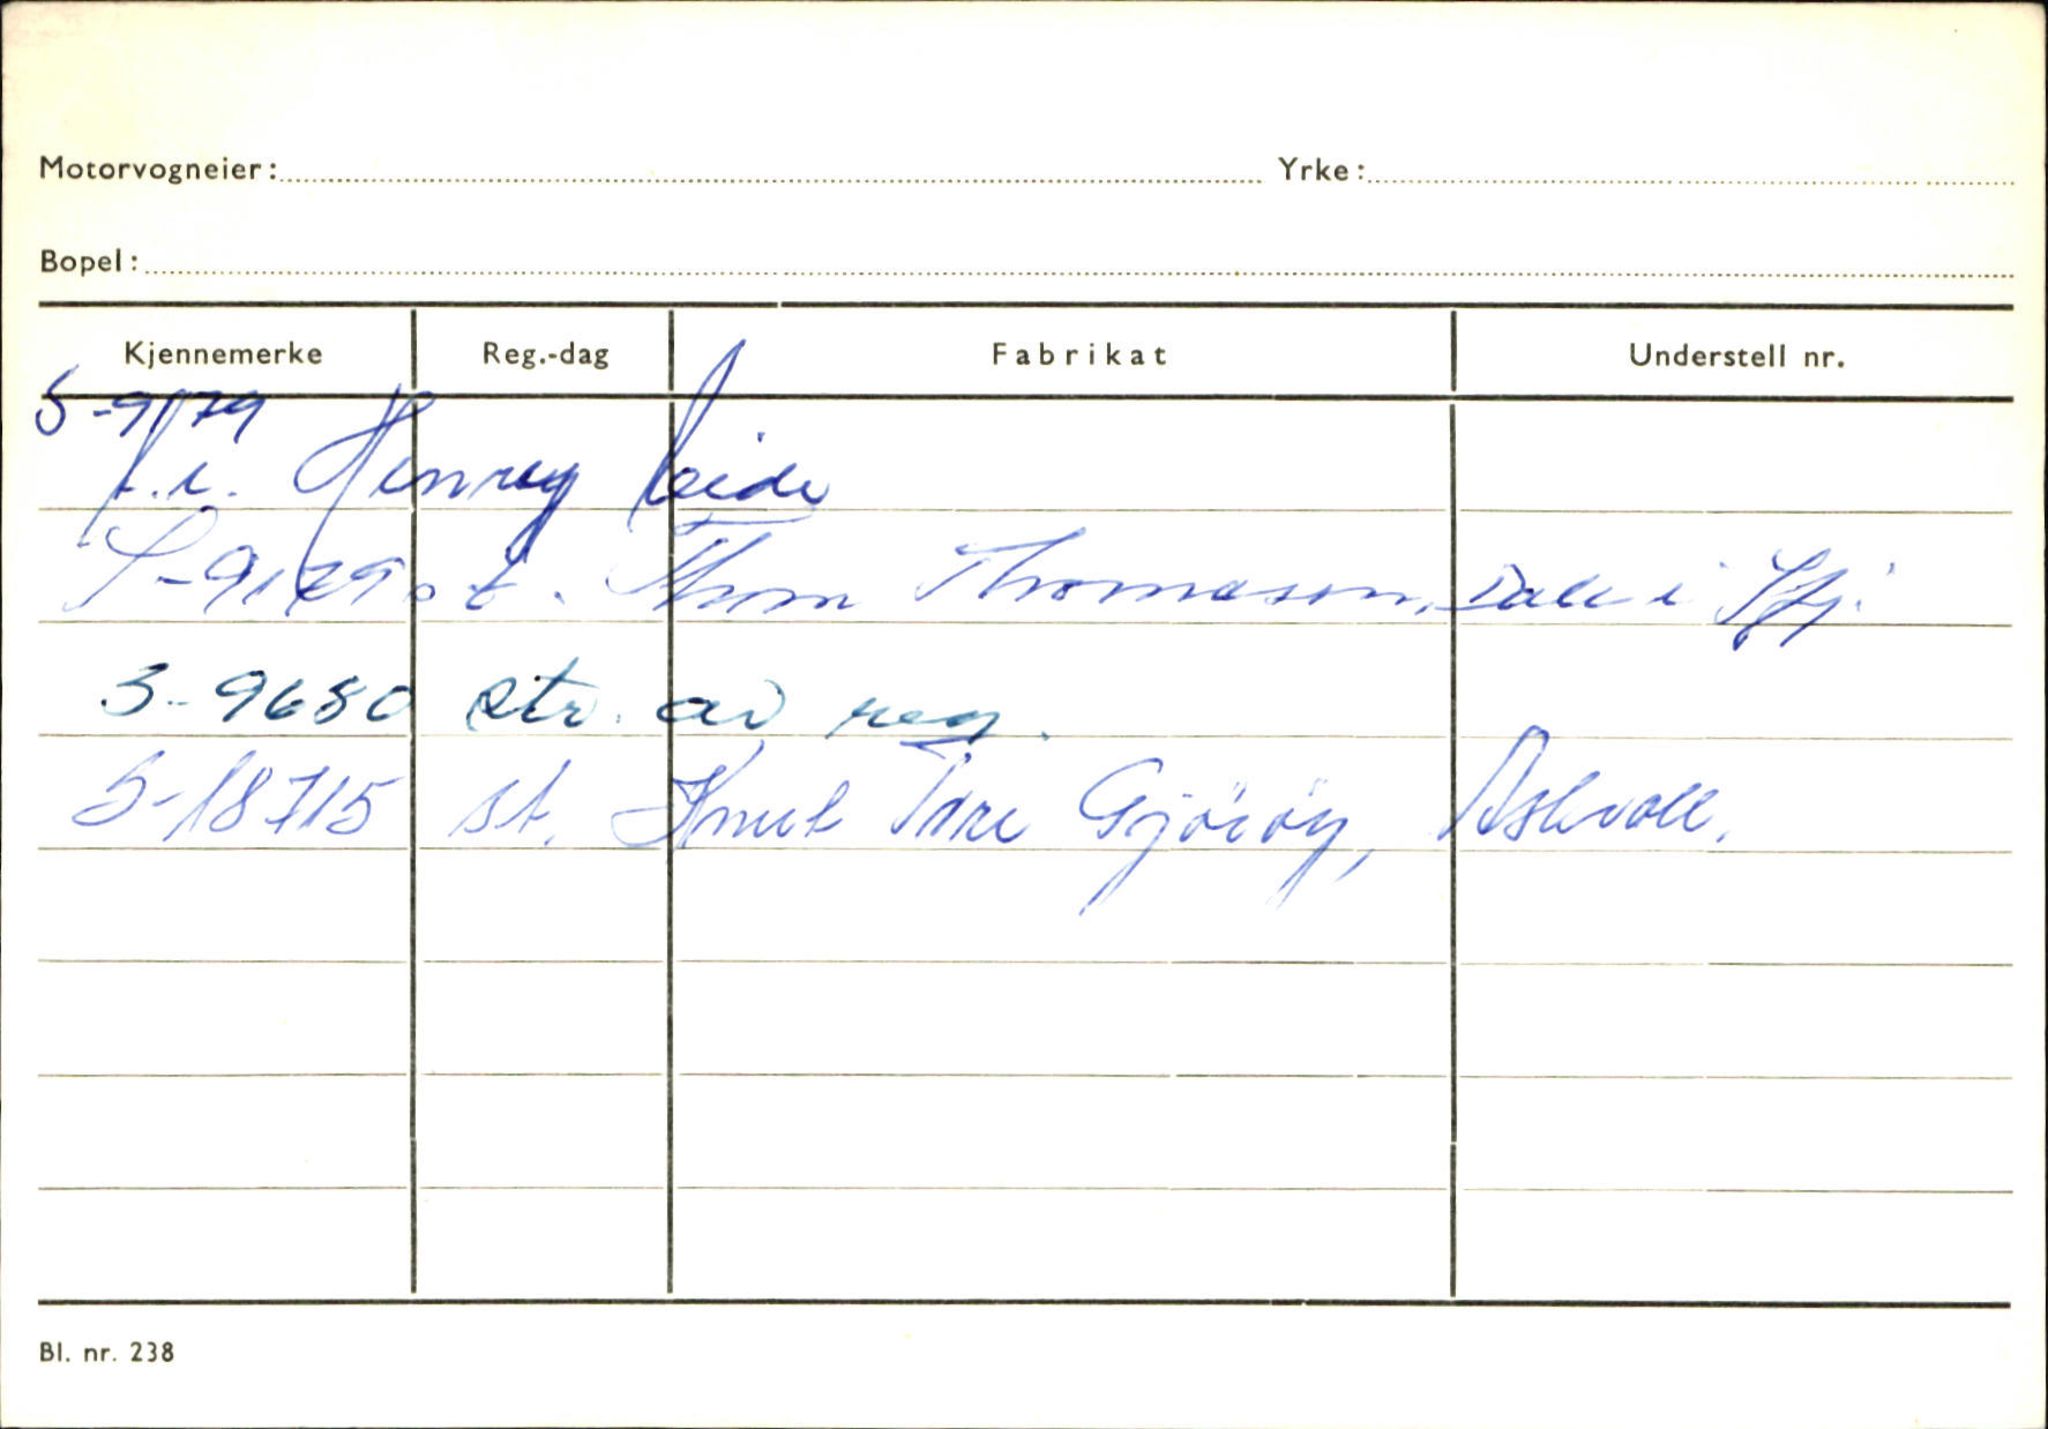 Motorvogneier: Yrke:
Bopel:
Kjennemerke Reg.-dag Fabrikat Understell nr.
S-9179
f.i. Henrey Leide
S-9179 s t. Thom Thomason, Dale i Sfj.
S-9680 str. av reg.
S-18715 st. Knut Tore Gjöröy, Askvoll.
Bl. nr. 238